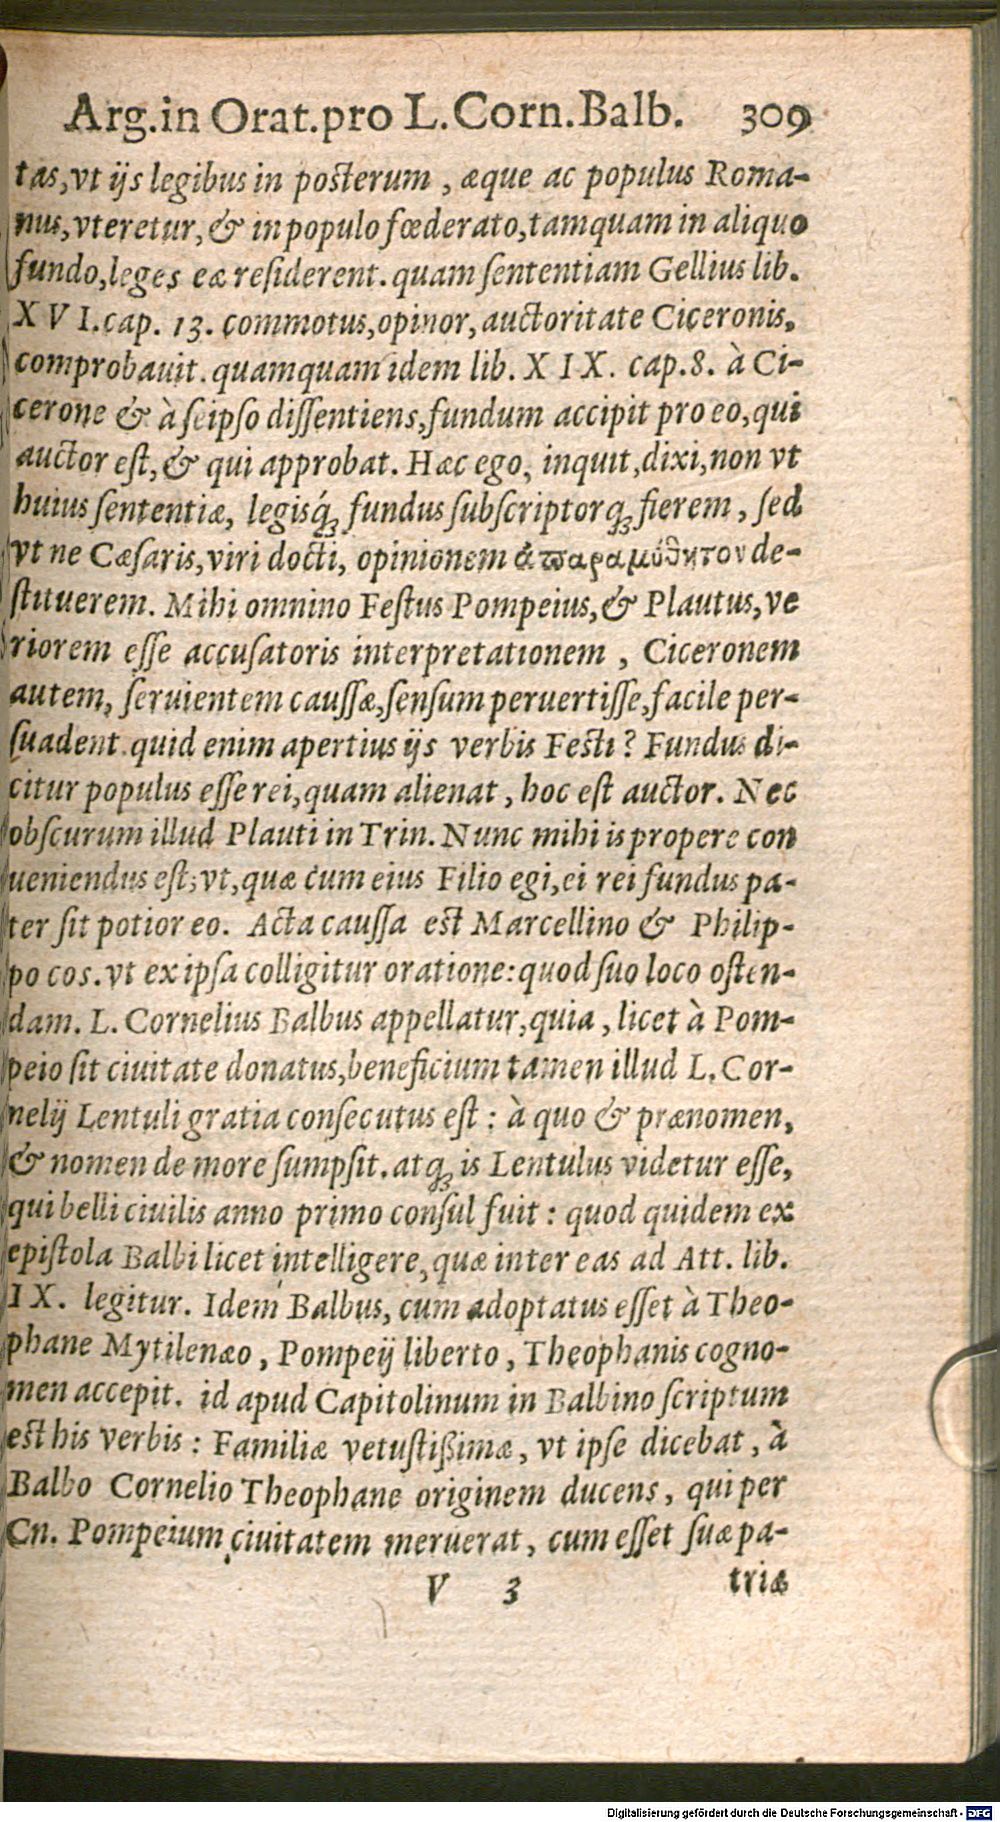 Arg.in Orat.pro L.Corn.Balb. 309
tas,vt ijs legibus in posterum , æque ac populus Roma-
nus,vteretur,& in populo fœderato,tamquam in aliquo
fundo,leges eæ residerent.quam sententiam Gellius lib.
XVI.cap. 13. commotus,opinor,auctoritate Ciceronis,
comprobauit.quamquam idem lib. XIX. cap.8. à Ci-
cerone & à seipso dissentiens,fundum accipit pro eo,qui
auctor est,& qui approbat. Hæc ego, inquit,dixi,non vt
huius sententiæ, legisq́; fundus subscriptorq; fierem, sed
vt ne Cæsaris,viri docti, opinionem ἀπαραμύθητον de-
stituerem. Mihi omnino Festus Pompeius,& Plautus,ve
riorem esse accusatoris interpretationem , Ciceronem
autem, seruientem caussæ,sensum peruertisse,facile per-
suadent.quid enim apertius ijs verbis Festi? Fundus di-
citur populus esse rei,quam alienat , hoc est auctor. Nec
obscurum illud Plauti in Trin. Nunc mihi is propere con
ueniendus est;vt,quæ cum eius Filio egi,ei rei fundus pa-
ter sit potior eo. Acta caussa est Marcellino & Philip-
po cos.vt ex ipsa colligitur oratione:quod suo loco osten-
dam. L. Cornelius Balbus appellatur,quia , licet à Pom-
peio sit ciuitate donatus,beneficium tamen illud L.Cor-
nelij Lentuli gratia consecutus est : à quo & prænomen,
& nomen de more sumpsit.atq; is Lentulus videtur esse,
qui belli ciuilis anno primo consul fuit : quod quidem ex
epistola Balbi licet intelligere,quæ inter eas ad Att. lib.
IX. legitur. Idem Balbus, cum adoptatus esset à Theo-
phane Mytilenæo , Pompeij liberto , Theophanis cogno-
men accepit. id apud Capitolinum in Balbino scriptum
est his verbis : Familiæ vetustißimæ, vt ipse dicebat , à
Balbo Cornelio Theophane originem ducens, qui per
Cn. Pompeium ciuitatem meruerat, cum esset suæ pa-
V 3 triæ
Digitalisierung gefördert durch die Deutsche Forschungsgemeinschaft - DFG